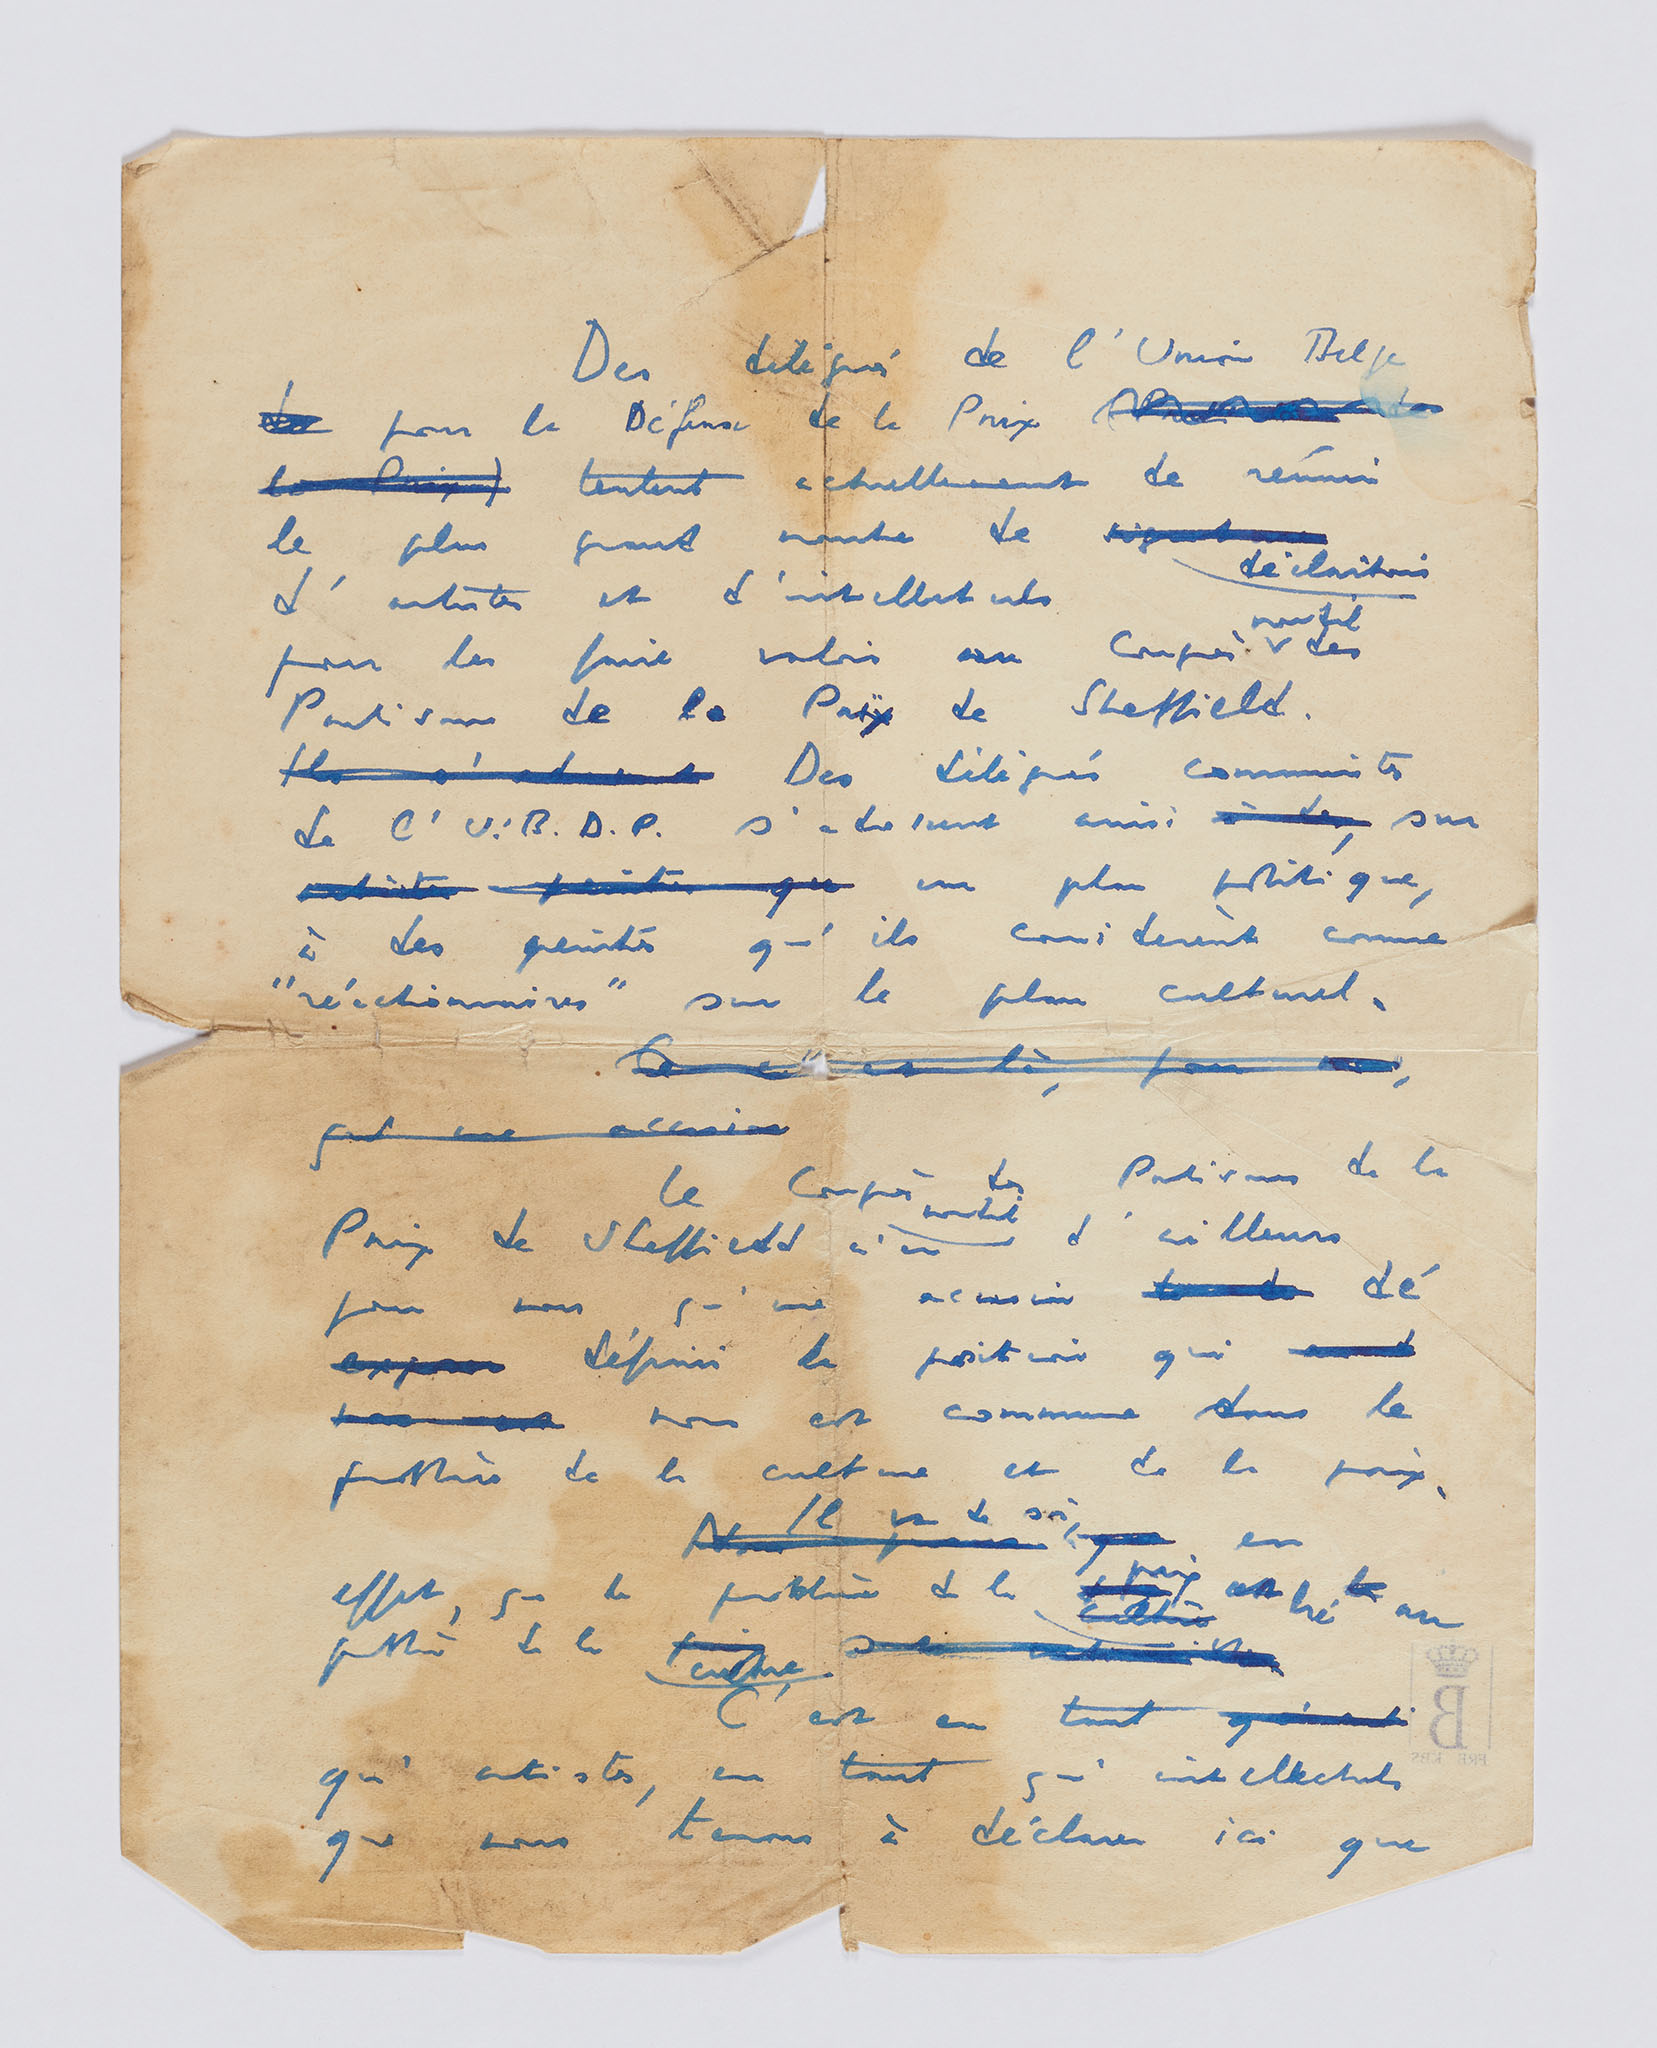 Des délégués de l'Union Belge
de pour la Défense de la Paix
la Paix) tentent actuellement de réunir
le plus grand nombre de signatures
déclarations
d'artistes et d'intellectuels
mondial
pour les faire valoir au Congrès des
Partisans de la Paix de Sheffield.
Ils s'adressent Des délégués communistes
de l'U.B.D.P. s'adressent ainsi à des, sur
artistes peintres que un plan politique,
à des peintres qu'ils considèrent comme
"réactionnaires" sur le plan culturel.
là, pour nous,
qu'une occasion
Le Congrès des Partisans de la
mondial
Paix de Sheffield n'est d'ailleurs
pour nous qu'une occasion dé
exposer définir la position qui
nous est commune dans le
problème de la culture et de la paix.
Il va de soi,
Nous pensons que en
paix
effet, que le problème de la est lié le au
culture
problème de la
culture
C'est en tant
qu'artistes, en tant qu'intellectuels
que nous tenons à déclarer ici que
B
FRB KBS